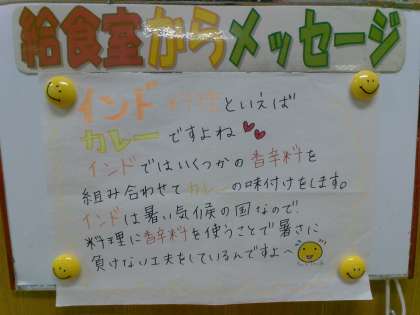 給食室からメッセージ
インド料理といえば
カレーですよね
インドではいくつかの香辛料を
組み合わせてカレーの味付けをします。
インドは暑い気候の国なので、
料理に香辛料を使うことで暑さに
負けない工夫をしているんですよ~